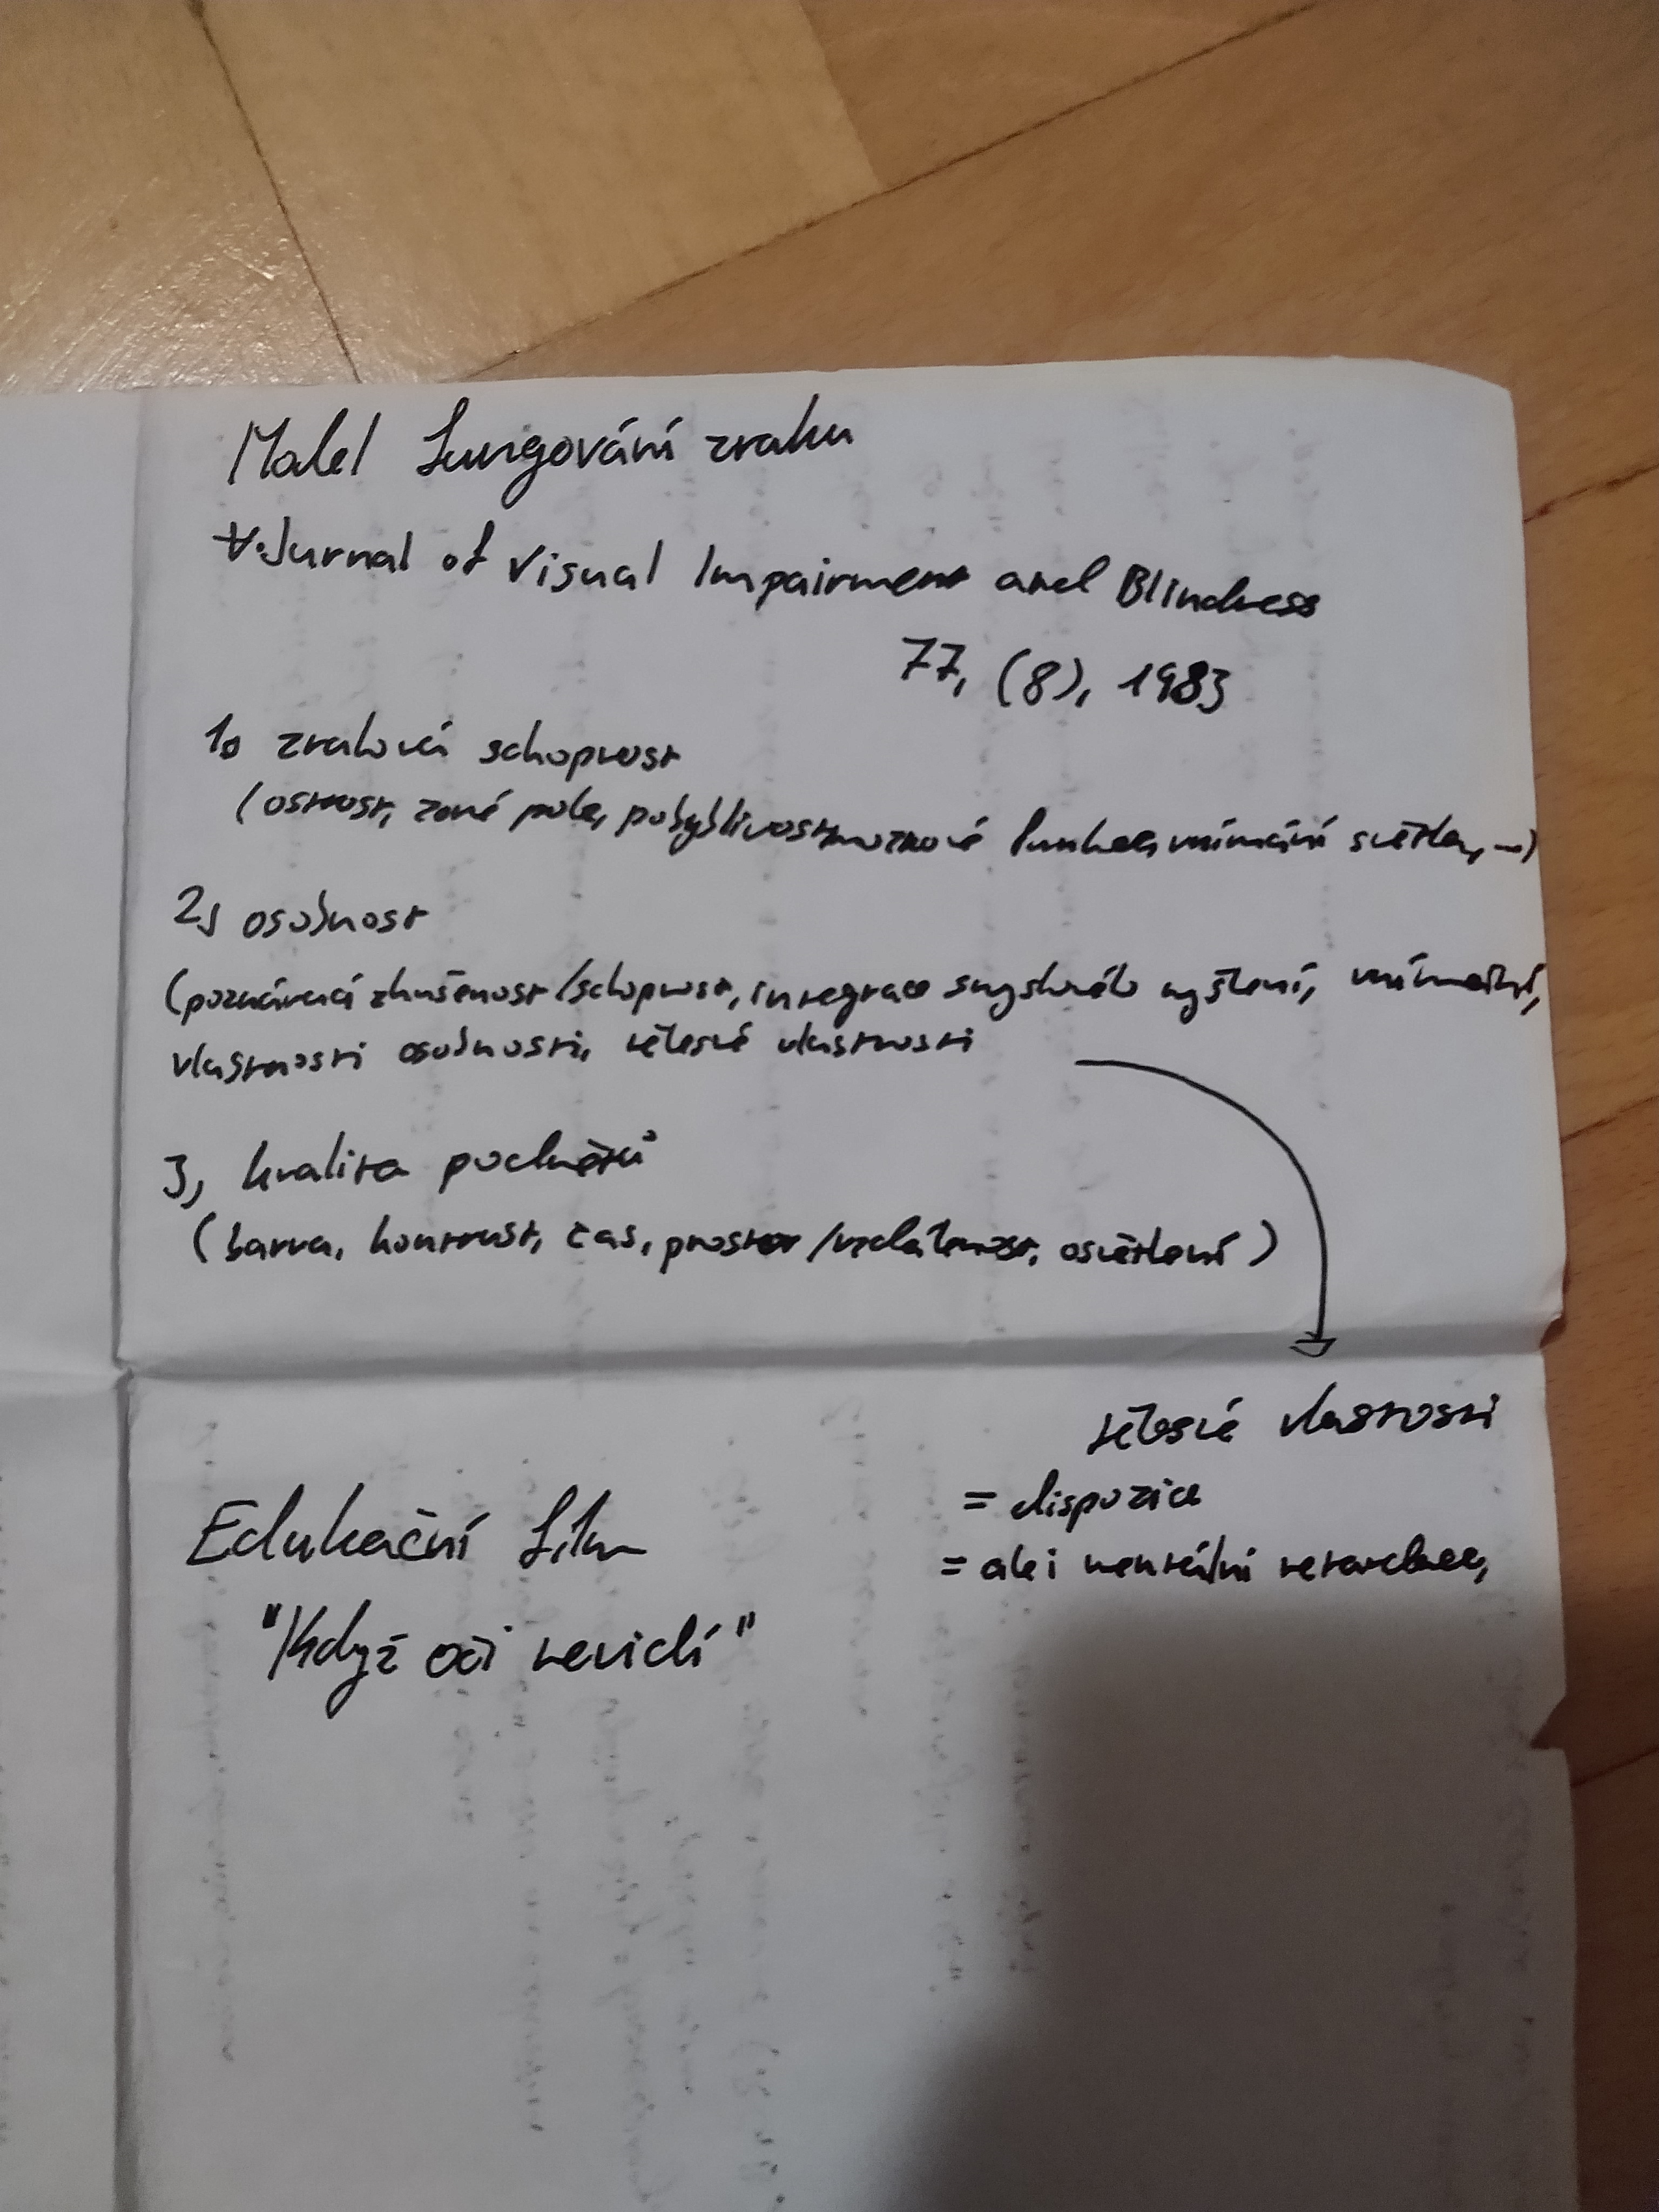 Model fungování zraku
Jurnal of Visual Impairment and Blindness
77, (8), 1983
1, zraková schopnost
(ostrost, zorné pole, pohyblivost, mozkové funkce, vnímání světla, …)
2, osobnost
(poznávací zkušenost/schopnost, integrace smyslového vyštení, vnímání,
vlastnosti osobnosti, tělesné vlastnosti
3, kvalita podnětů
(barva, kontrast, čas, prostor/vzdálenost, osvětlení)
tělesné vlastnosti
= dispozice
= ale i mentální retardace,
Edukační film
"Když oči nevidí"